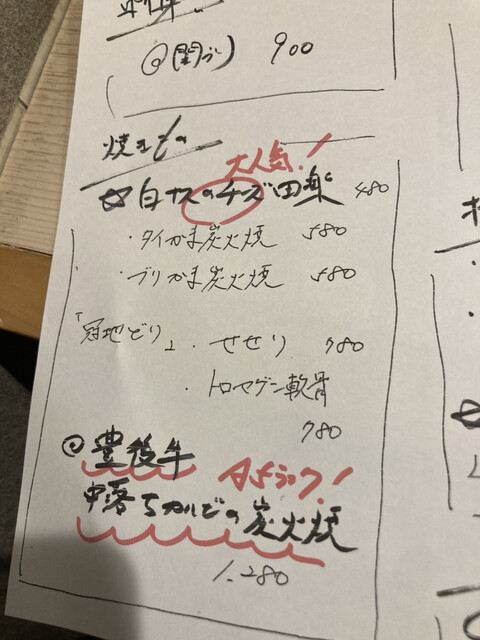 ◎(関ぶり) 900
焼きもの
大人気!
☆白ナスのチーズ田楽 480
・タイかま炭火焼 580
・ブリかま炭火焼 580
「冠地どり」・せせり 780
・トロヤゲン軟骨
780
◎豊後牛
A5ランク!
中落ちカルビの炭火焼
1.280